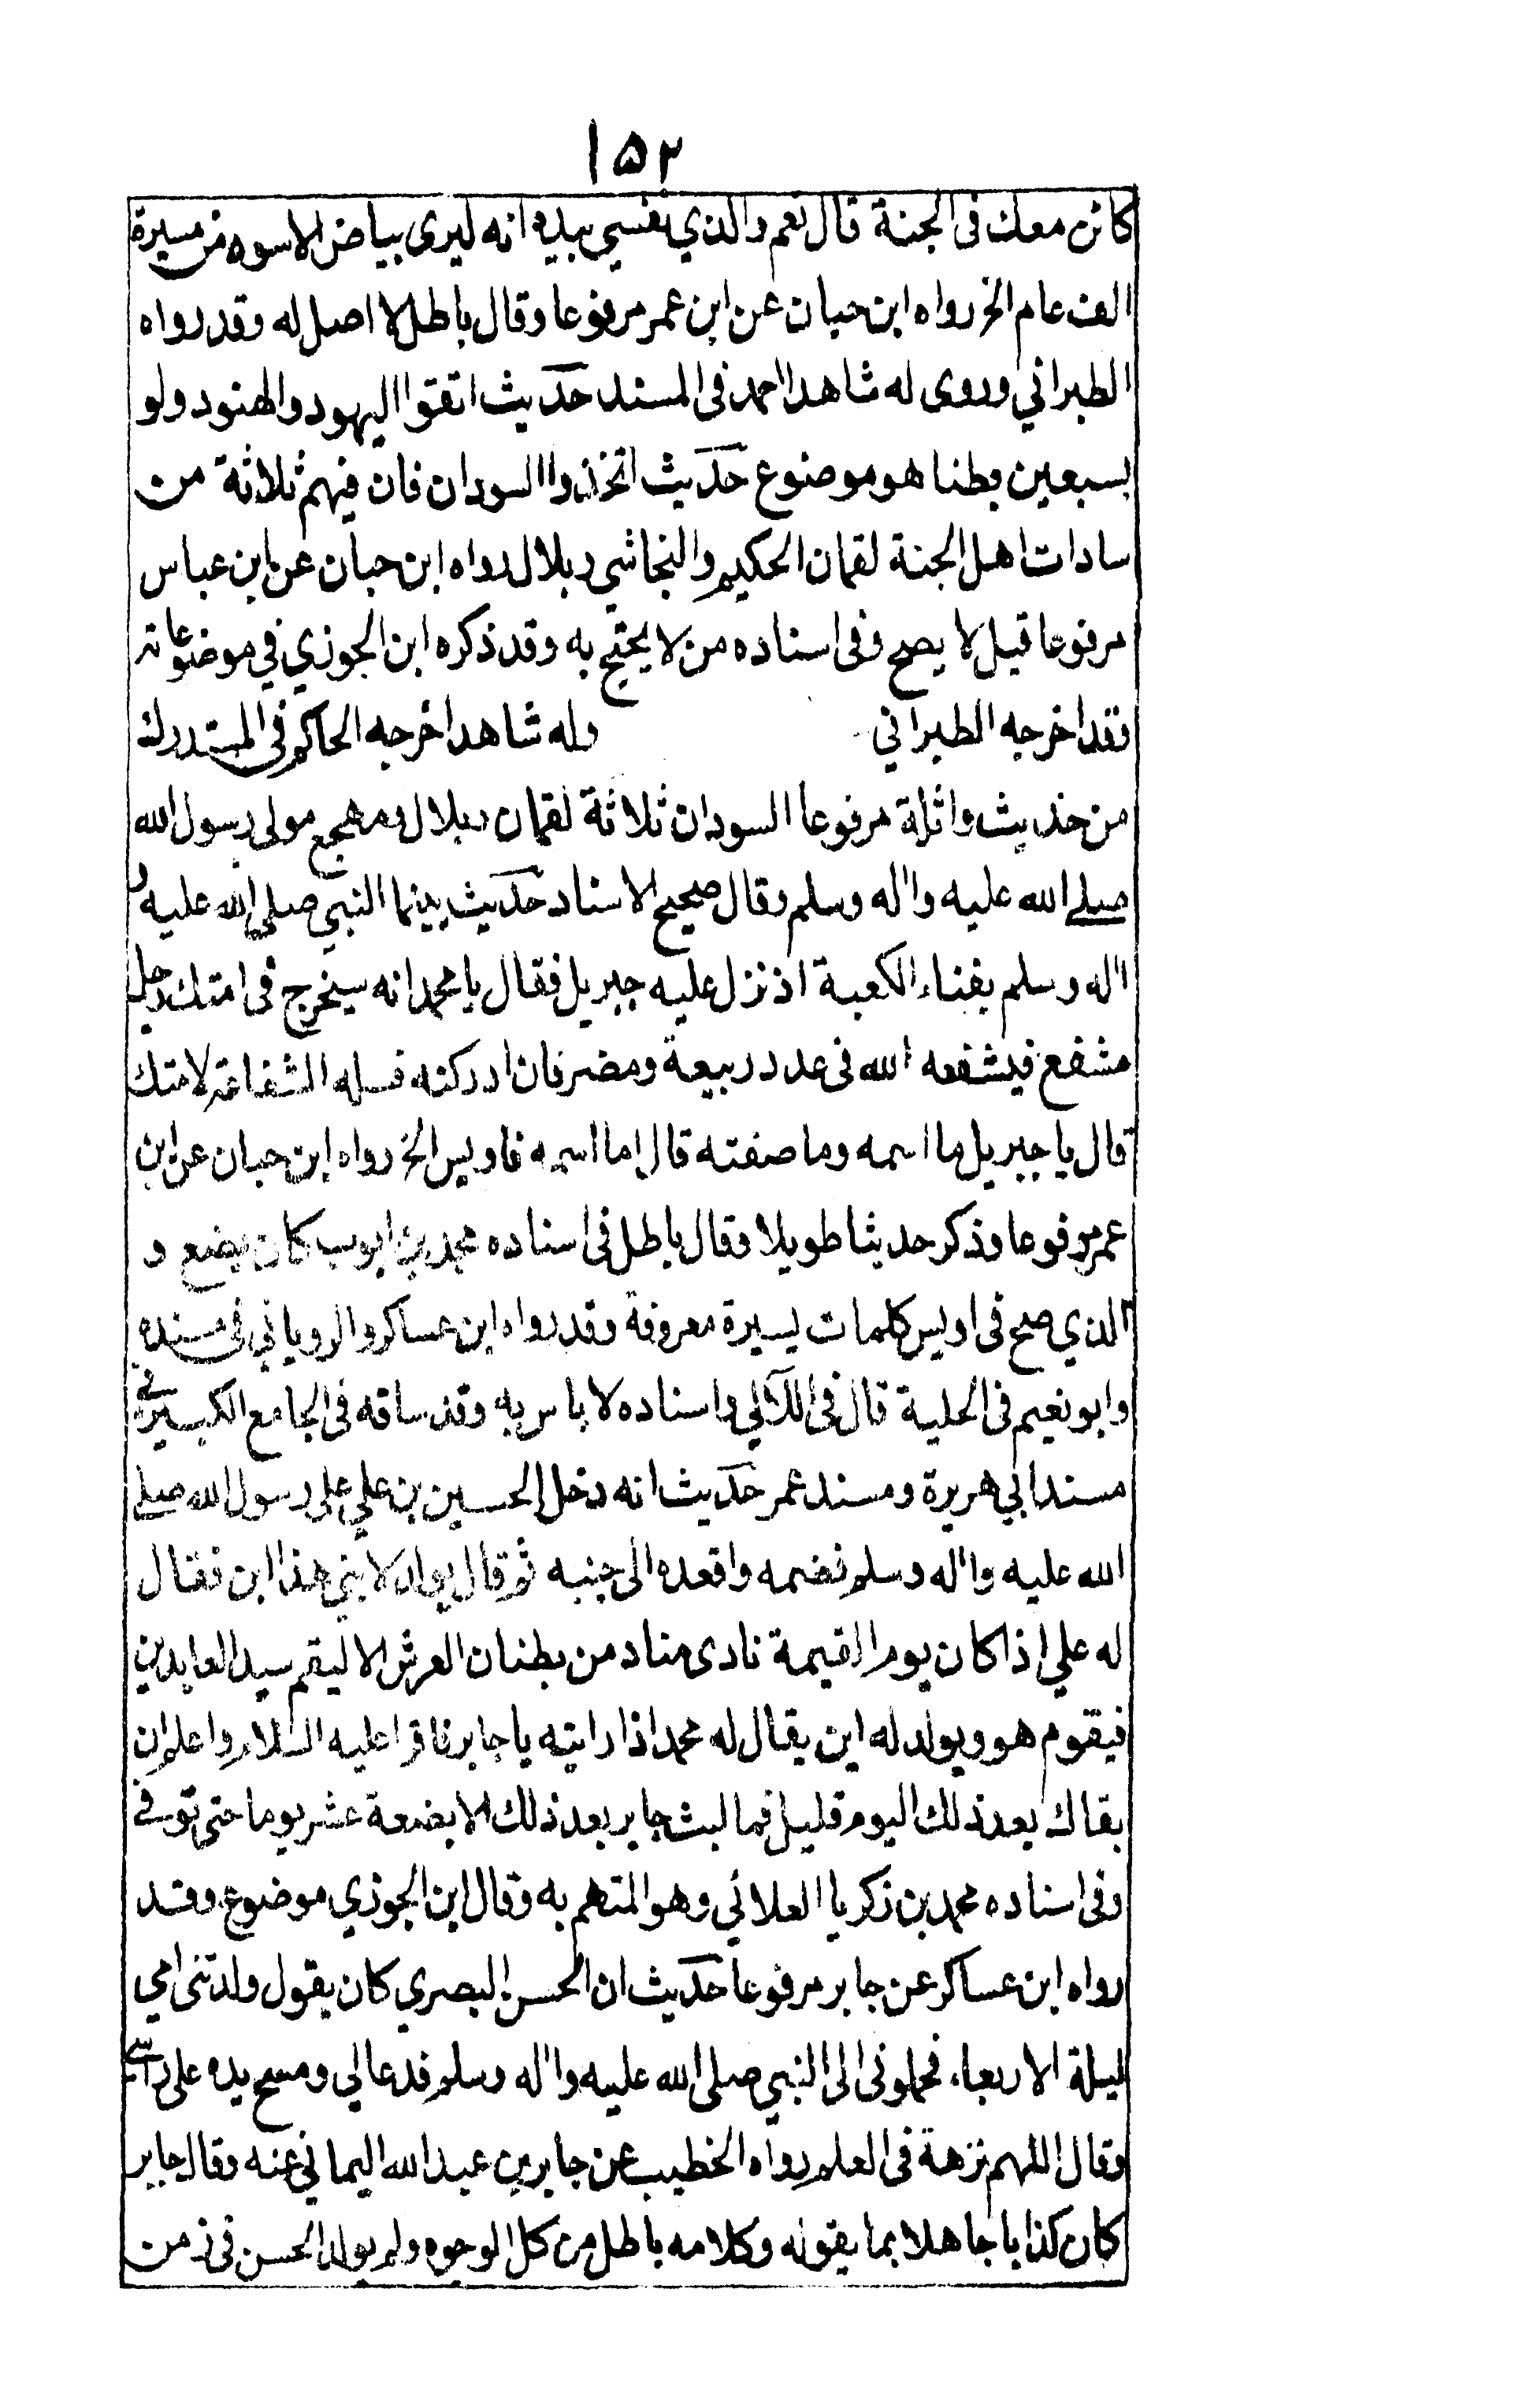 ١٥٢
كائن معك فى الجنة قال نعم والذي نفسي بيده انه ليرى بياض الاسود من مسيرة
الف عام الخ رواه ابن حبان عن ابن عمر مرفوعا وقال باطل لا اصل له وقد رواه
الطبراني وروى له شاهدا احمد فى المسند حديث اتقوا اليهود والهنود ولو
بسبعين بطنا هو موضوع حديث اتخذوا السودان فان فيهم ثلاثة من
سادات اهل الجنة لقمان الحكيم والنجاشي وبلال رواه ابن حبان عن ابن عباس
مرفوعا قيل لا يصح وفى اسناده من لا يحتج به وقد ذكره ابن الجوزي في موضوعاته
وقد اخرجه الطبراني وله شاهد اخرجه الحاكم فى المستدرك
من حديث واثلة مرفوعا السودان ثلاثة لقمان وبلال ومهجع مولى رسول الله
صلى الله عليه واله وسلم وقال صحيح الاسناد حديث بينما النبي صلى الله عليه و
اله وسلم بفناء الكعبة اذ نزل عليه جبريل فقال يا محمد انه سيخرج فى امتك رجل
مشفع فيشفعه الله فى عدد ربيعة ومضر فان ادركته فسله الشفاعة لامتك
قال يا جبريل ما اسمه وما صفته قال اما اسمه فاويس الخ رواه ابن حبان عن ابن
عمر مرفوعا وذكر حديثا طويلا وقال باطل فى اسناده محمد بن ايوب كان يضع و
الذي صح فى اويس كلمات يسيرة معروفة وقد رواه ابن عساكر والروياني فى مسنده
وابو نعيم فى الحلية قال فى اللآلي واسناده لا باس به وقد ساقه فى الجامع الكبير في
مسند ابي هريرة ومسند عمر حديث انه دخل الحسين بن علي على رسول الله صلى
الله عليه واله وسلم فضمه واقعده الى جنبه ثم قال يولد لابني هذا ابن فقال
له علي اذا كان يوم القيمة نادى مناد من بطنان العرش الا ليقم سيد العابدين
فيقوم هو ويولد له ابن يقال له محمد اذا رايته يا جابر فاقرا عليه السلام واعلم ان
بقاك بعد ذلك اليوم قليل فما لبث جابر بعد ذلك الا بضعة عشر يوما حتى توفي
وفى اسناده محمد بن زكريا العلائي وهو المتهم به وقال ابن الجوزي موضوع وقد
رواه ابن عساكر عن جابر مرفوعا حديث ان الحسن البصري كان يقول ولدتنى امي
ليلة الاربعاء فحملونى الى النبي صلى الله عليه واله وسلم فدعا لي ومسح يده على راسي
وقال اللهم نزهة فى العلم رواه الخطيب عن جابر بن عبد الله اليماني عنه وقال جابر
كان كذابا جاهلا بما يقوله وكلامه باطل من كل الوجوه ولم يولد الحسن فى زمن